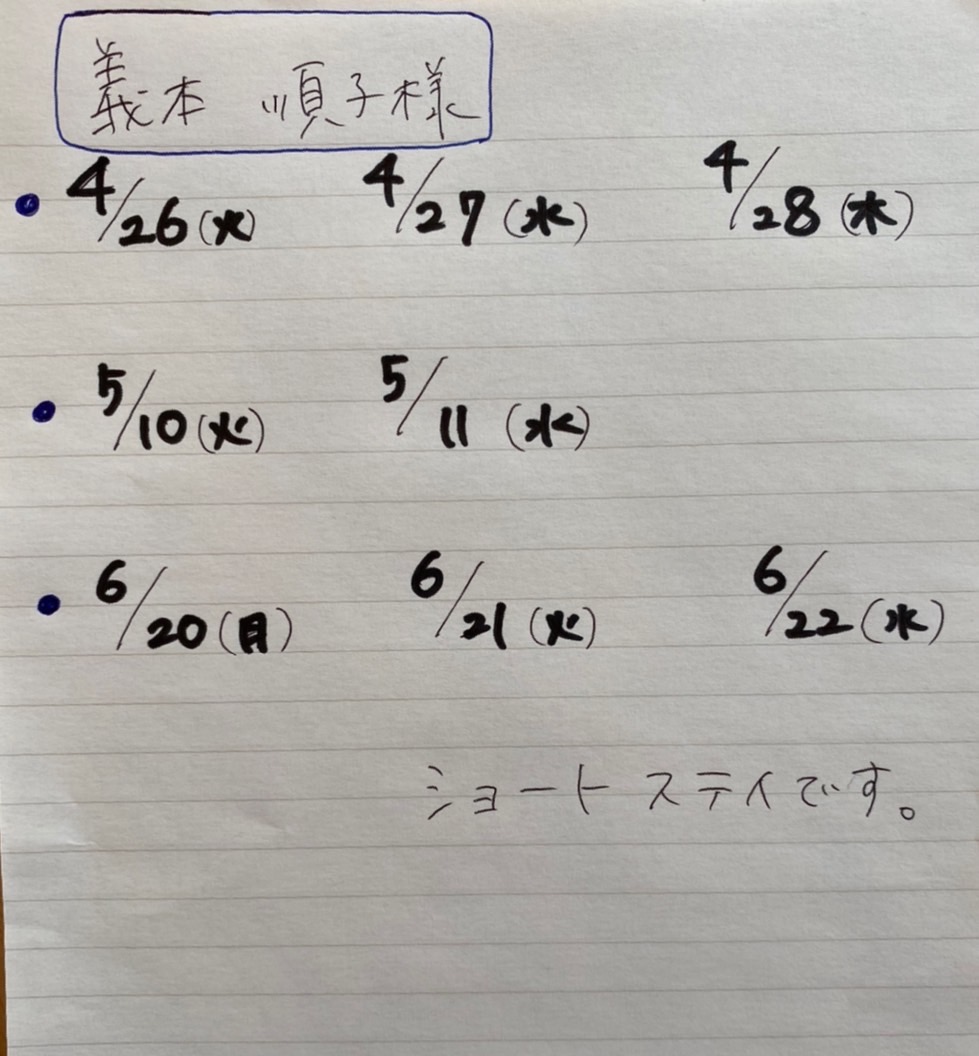 義本 順子様
• 4/26(火) 4/27(水) 4/28(木)
• 5/10(火) 5/11(水)
• 6/20(月) 6/21(火) 6/22(水)
ショートステイです。